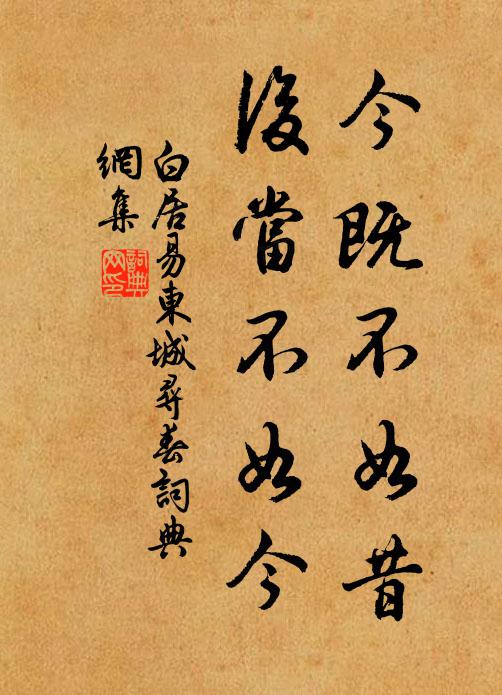 今既不如昔
後當不如今
白居易東城尋春詞典
網集
詞典網印